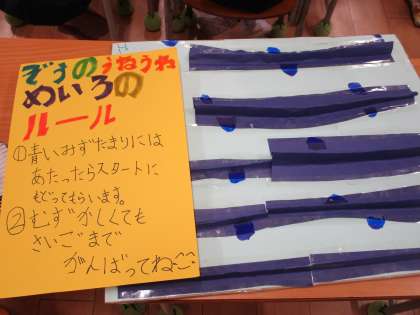 ぞうのうねうね
めいろの
ルール
①青いみずたまりには
あたったらスタートに
もどってもらいます。
②むずかしくても
さいごまで
がんばってね^^